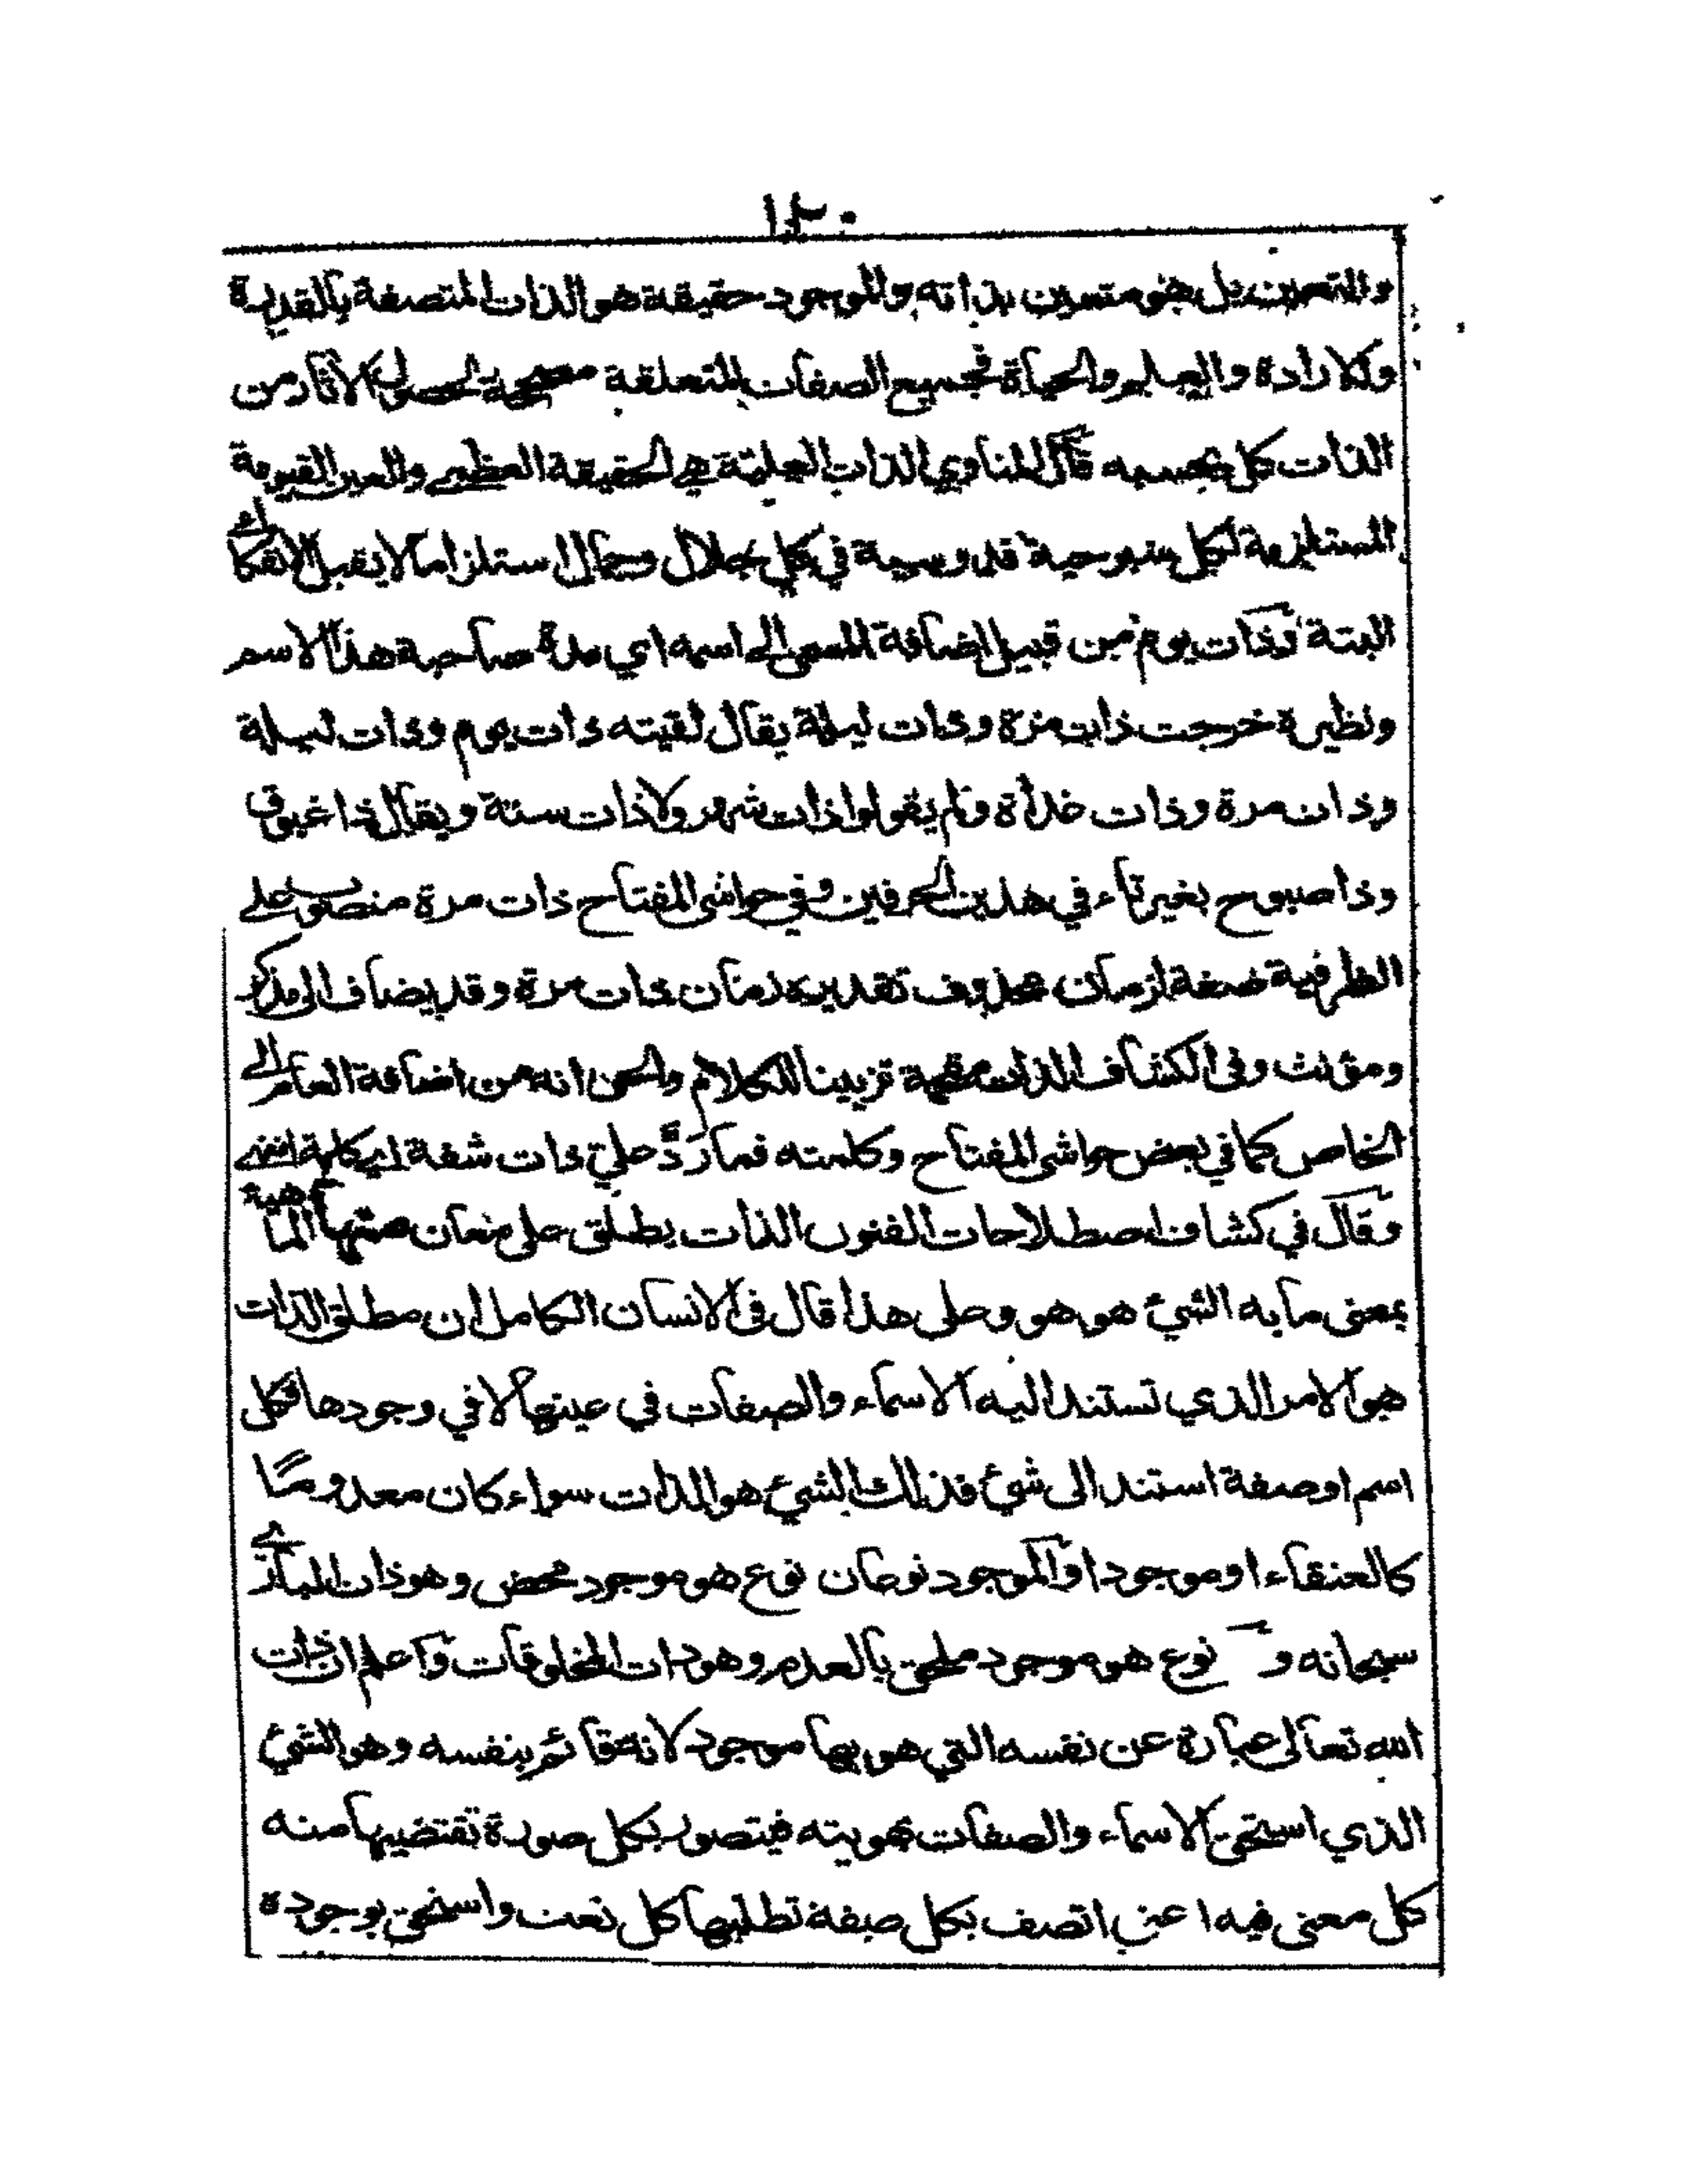 ١٣٠
والتعين بل هو متعين بذاته والموجود حقيقة هو الذات المتصفة بالقدرة
والارادة والعلم والحياة فجميع الصفات المتعلقة مصححة لحصول الاثار من
الذات كل بحسبه قال المناوي الذات العلية هي الحقيقة العظمى والعين القيومة
المستلزمة لكل سبوحية قدوسية في كل جلال وجمال استلزاما لا يقبل الانفكاك
البتة وذات يوم من قبيل اضافة المسمى الى اسمه اي مدة صاحبة هذا الاسم
ونظيرة خرجت ذات مرة وذات ليلة يقال لقيته ذات يوم وذات ليلة
وذات مرة وذات غداة ولم يقولوا ذات شهر ولا ذات سنة ويقال ذا غبوق
وذا صبوح بغير تاء في هذين الحرفين وفي حواشى المفتاح ذات مرة منصوب على
الظرفية صفة لزمان محذوف تقديره زمان ذات مرة وقد يضاف الى مذكر
ومؤنث وفى الكشاف الذات مقحمة تزيينا للكلام والحق انه من اضافة العام الى
الخاص كما في بعض حواشى المفتاح وكلمته فما رَدَّ علي ذات شفة اي كلمة انتهى
وقال في كشاف اصطلاحات الفنون الذات يطلق على معان منها الماهية
بمعنى ما به الشئ هو هو وعلى هذا قال فى الانسان الكامل ان مطلق الذات
هو الامر الذي تستند اليه الاسماء والصفات في عينها لا في وجودها فكل
اسم او صفة استند الى شئ فذلك الشئ هو الذات سواء كان معدومًا
كالعنقاء او موجودا والموجود نوعان نوع هو موجود محض وهو ذات الباري
سبحانه و نوع هو موجود ملحق بالعدم وهو ذات المخلوقات واعلم ان ذات
الله تعالى عبارة عن نفسه التي هو بها موجود لانه قائم بنفسه وهو الشئ
الذي استحق الاسماء والصفات بهويته فيتصور بكل صورة تقتضيها منه
كل معنى فيه اعني اتصف بكل صفة تطلبها كل نعت واستحق بوجوده